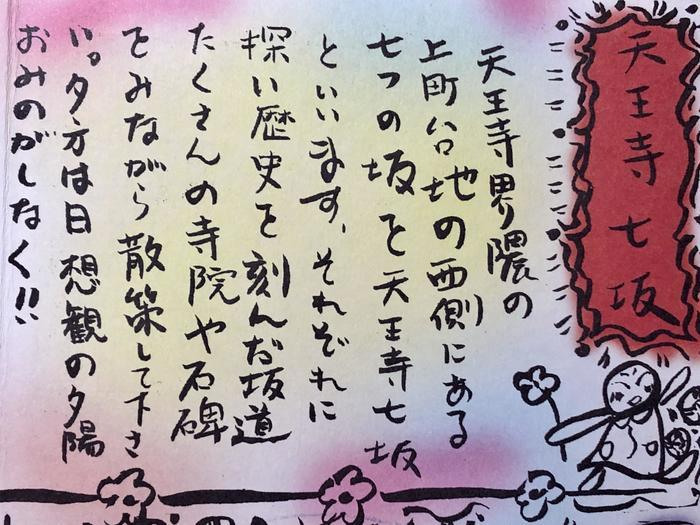 天王寺七坂
天王寺界隈の
上町台地の西側にある
七つの坂を天王寺七坂
といいます、それぞれに
探い歴史を刻んだ坂道
たくさんの寺院や石碑
をみながら散策して下さ
い。夕方は日想観の夕陽
おみのがしなく!!